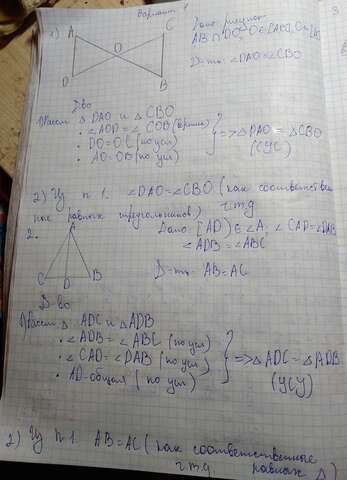 Вариант
1) A C
O
D B
Дано рисунок
AB ∩ DC,
D-ть ∠DAO=∠CBO
D-во
1) Рассм △ DAO и △ CBO
• ∠AOD = ∠ COB (верт)
• DO=OC (по усл)
• AO=OB (по усл)
=> △DAO = △CBO
(СУС)
2) Из п 1. ∠DAO=∠CBO (как соответствен
ные равных треугольников)
ч.т.д
2. A
C D B
Дано [AD) ∈ ∠A; ∠CAD=∠DAB
∠ADB = ∠ABC
D-ть AB=AC
D-во
1) Рассм △ ADC и △ADB
• ∠ADB = ∠ABC (по усл)
• ∠CAD = ∠DAB (по усл)
• AD-общая (по усл)
=> △ADC = △ADB
(УСУ)
2) Из п 1. AB=AC (как соответственные
равных △)
ч.т.д